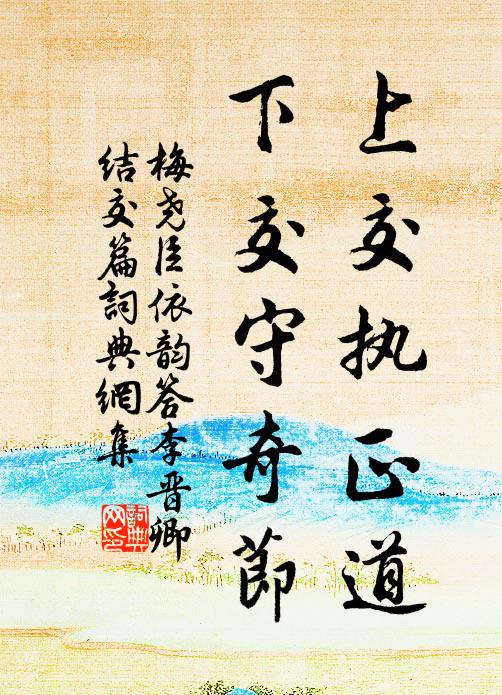 上交执正道
下交守奇節
梅尧臣依韵答李晋卿
结交篇詞典網集